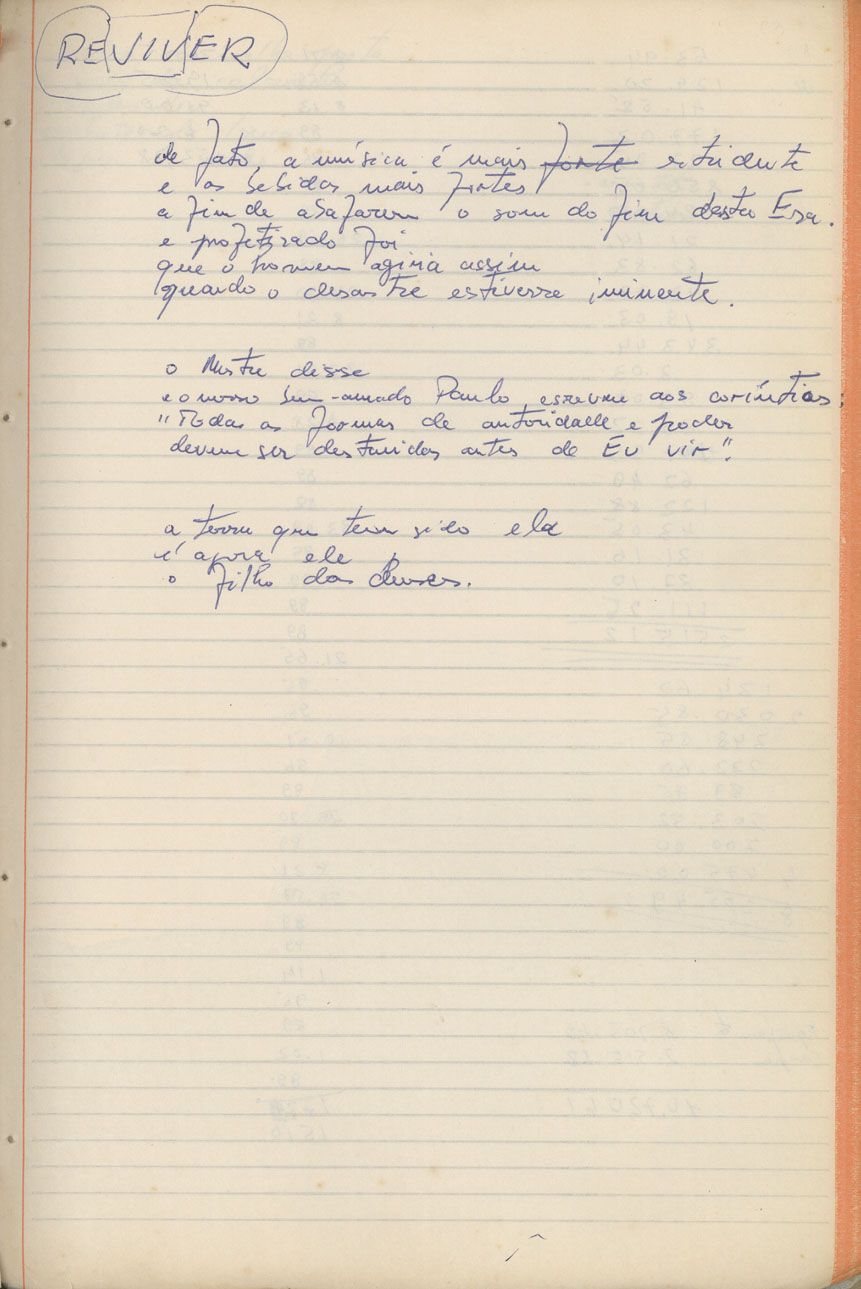 REVIVER
de fato, a música é mais forte estridente
e as bebidas mais fortes
a fim de abafarem o som do fim desta Era.
e profetizado foi
que o homem agiria assim
quando o desastre estiverre iminente.
o Mestre disse
e o nosso bem-amado Paulo escreveu aos coríntios:
"Todas as formas de autoridade e poder
devem ser destruidas antes de Eu vir".
a terra que tem sido ela
é agora ele
o filho das deuses.